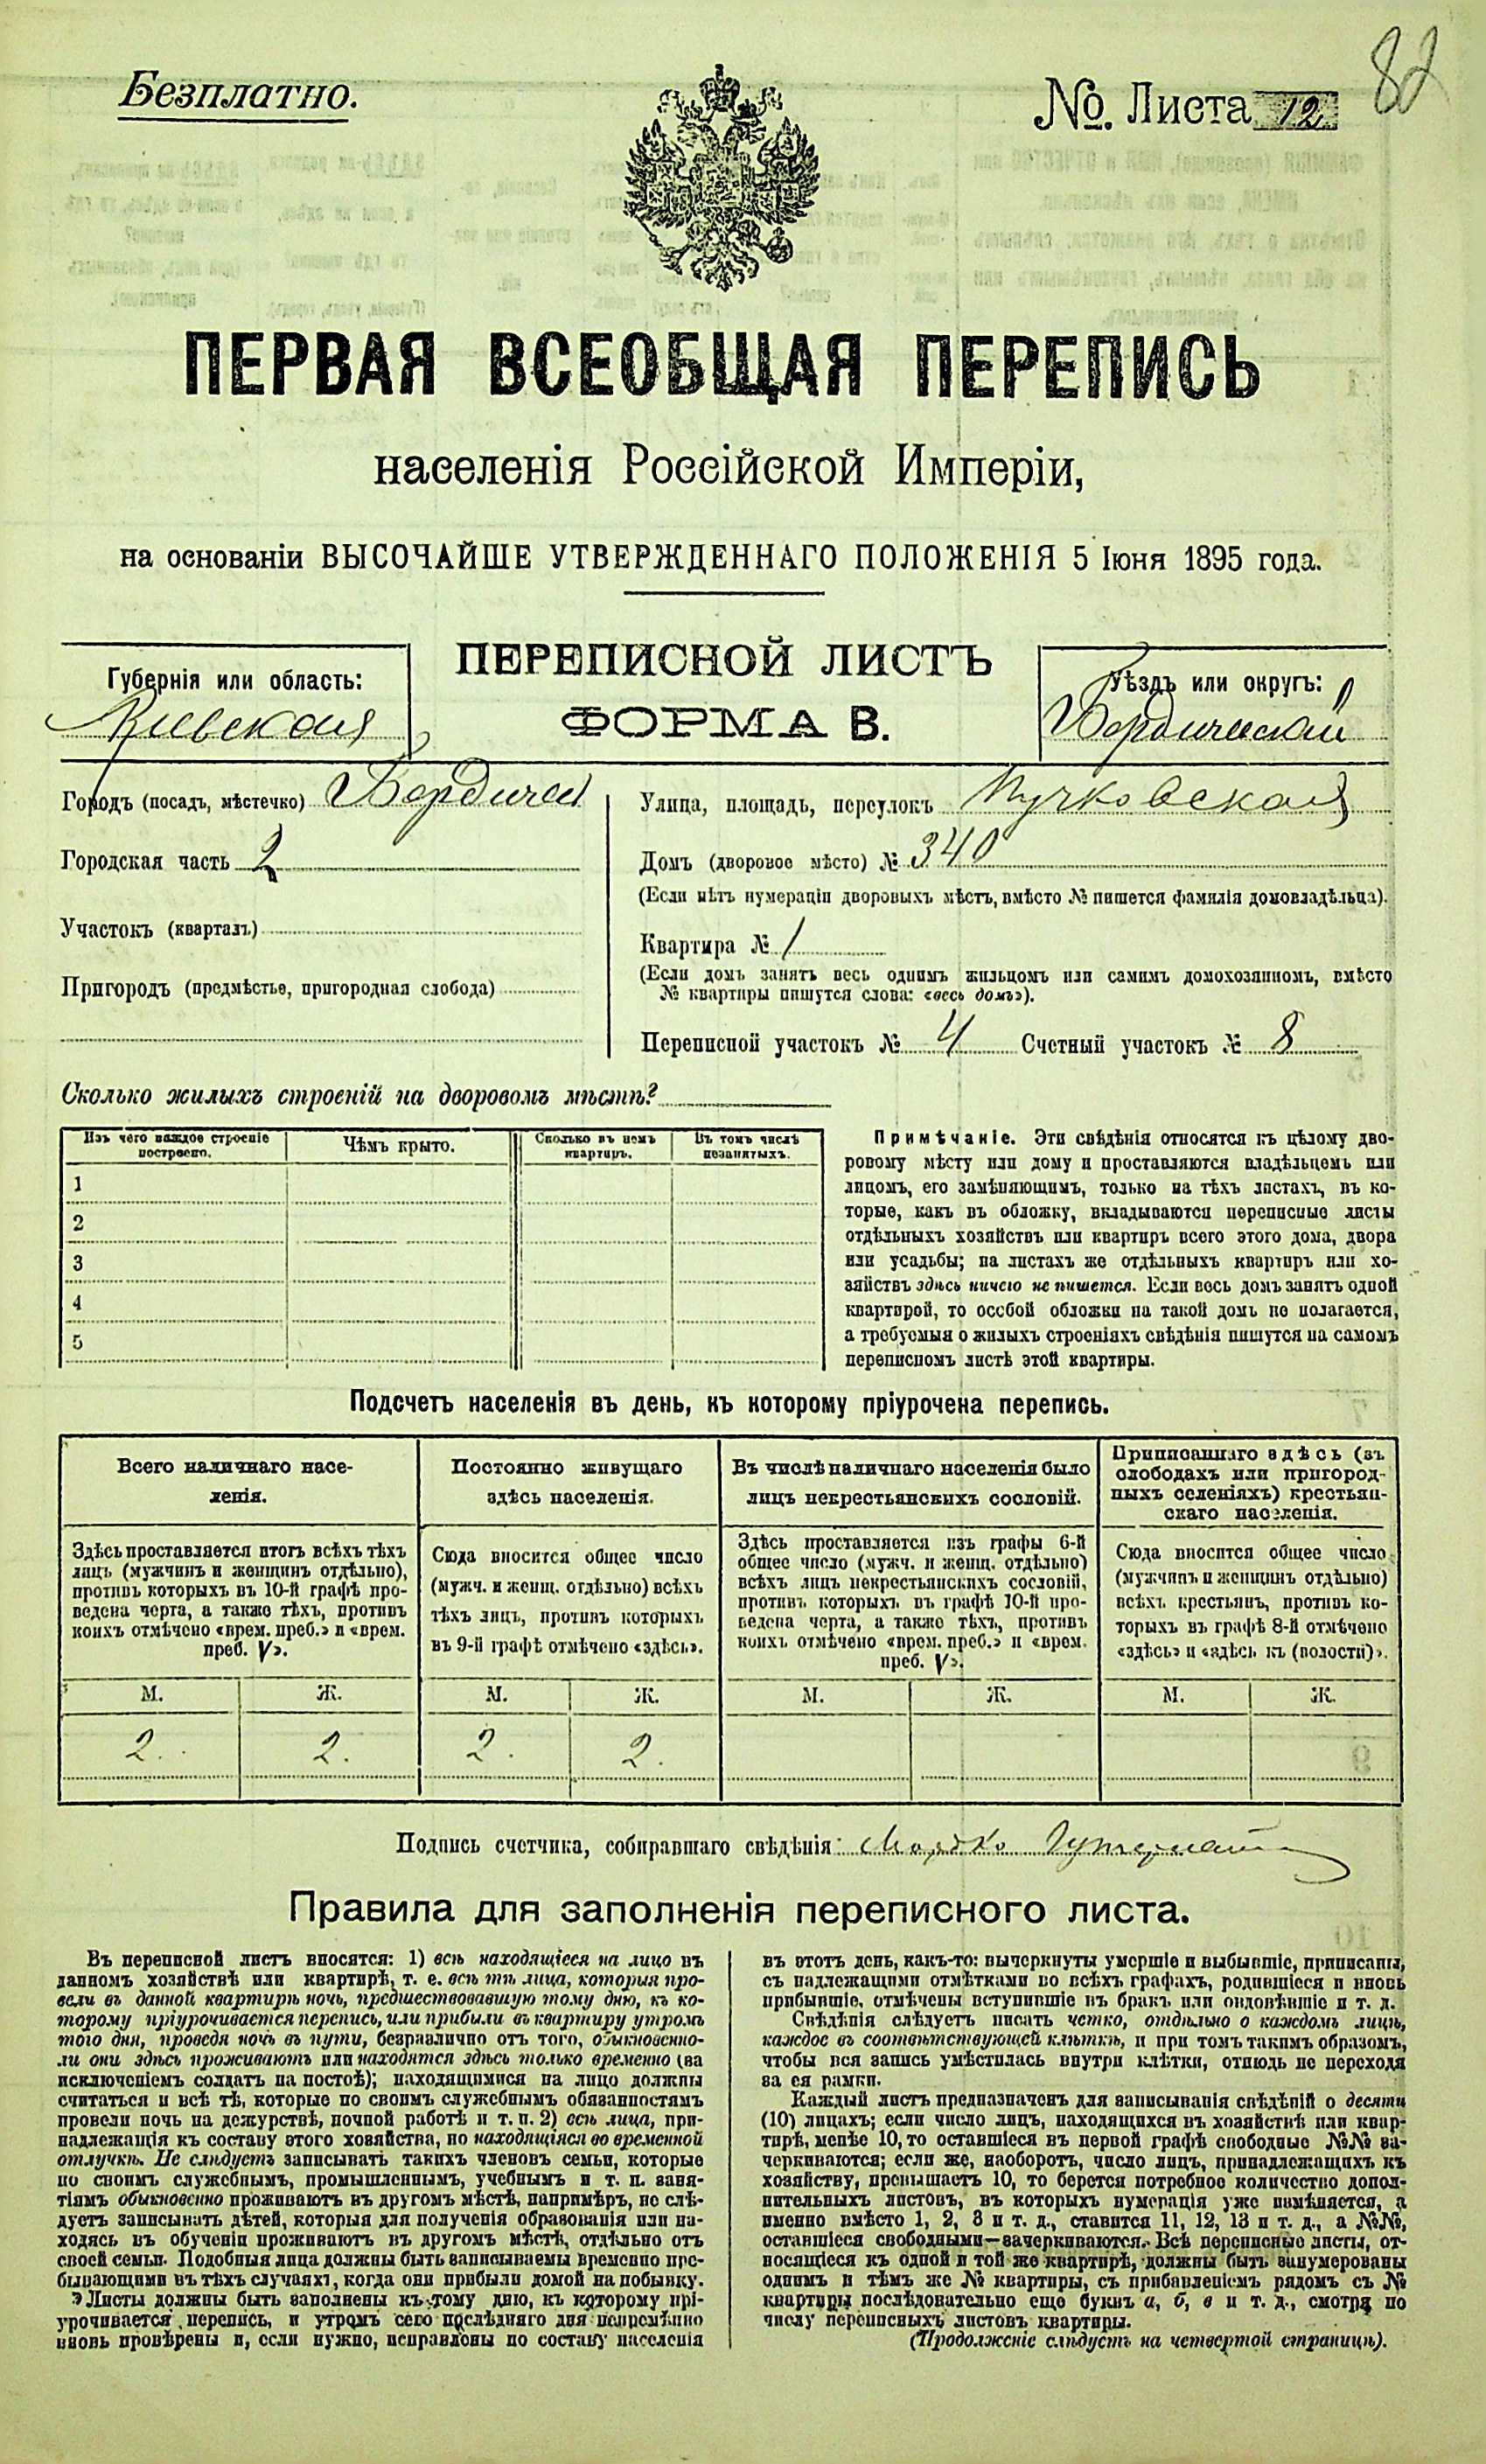 Безплатно.
№. Листа 12
82
ПЕРВАЯ ВСЕОБЩАЯ ПЕРЕПИСЬ
населенія Россійской Имперіи,
на основаніи ВЫСОЧАЙШЕ УТВЕРЖДЕННАГО ПОЛОЖЕНІЯ 5 Іюня 1895 года.
ПЕРЕПИСНОЙ ЛИСТЪ
ФОРМА В.
Губернія или область:
Киевская
Уѣздъ или округъ:
Бердичевскій
Городъ (посадъ, мѣстечко) Бердичев
Городская часть 2
Участокъ (кварталъ)
Пригородъ (предмѣстье, пригородная слобода)
Улица, площадь, переулокъ Пучковская
Домъ (дворовое мѣсто) № 340
(Если нѣтъ нумераціи дворовыхъ мѣстъ, вмѣсто № пишется фамилія домовладѣльца).
Квартира № 1
(Если домъ занятъ весь однимъ жильцомъ или самимъ домохозяиномъ, вмѣсто
№ квартиры пишутся слова: «весь домъ»).
Переписной участокъ № 4 Счетный участокъ № 8
Сколько жилыхъ строеній на дворовомъ мѣстѣ?
Изъ чего каждое строеніе построено.
Чѣмъ крыто.
Сколько въ немъ квартиръ.
Въ томъ числѣ незанятыхъ.
1
2
3
4
5
Примѣчаніе. Эти свѣдѣнія относятся къ цѣлому дво-
ровому мѣсту или дому и проставляются владѣльцемъ или
лицомъ, его замѣняющимъ, только на тѣхъ листахъ, въ ко-
торые, какъ въ обложку, вкладываются переписные листы
отдѣльныхъ хозяйствъ или квартиръ всего этого дома, двора
или усадьбы; на листахъ же отдѣльныхъ квартиръ или хо-
зяйствъ здѣсь ничего не пишется. Если весь домъ занятъ одной
квартирой, то особой обложки на такой домъ не полагается,
а требуемыя о жилыхъ строеніяхъ свѣдѣнія пишутся на самомъ
переписномъ листѣ этой квартиры.
Подсчетъ населенія въ день, къ которому пріурочена перепись.
Всего наличнаго насе-
ленія.
Здѣсь проставляется итогъ всѣхъ тѣхъ
лицъ (мужчинъ и женщинъ отдѣльно),
противъ которыхъ въ 10-й графѣ про-
ведена черта, а также тѣхъ, противъ
коихъ отмѣчено «врем. преб.» и «врем.
преб. V».
М. Ж.
2. 2.
Постоянно живущаго
здѣсь населенія.
Сюда вносится общее число
(мужч. и женщ. отдѣльно) всѣхъ
тѣхъ лицъ, противъ которыхъ
въ 9-й графѣ отмѣчено «здѣсь».
М. Ж.
2. 2.
Въ числѣ наличнаго населенія было
лицъ некрестьянскихъ сословій.
Здѣсь проставляется изъ графы 6-й
общее число (мужч. и женщ. отдѣльно)
всѣхъ лицъ некрестьянскихъ сословій,
противъ которыхъ въ графѣ 10-й про-
ведена черта, а также тѣхъ, противъ
коихъ отмѣчено «врем. преб.» и «врем.
преб. V».
М. Ж.
Приписаннаго здѣсь (въ
слободахъ или пригород-
ныхъ селеніяхъ) крестьян-
скаго населенія.
Сюда вносится общее число
(мужчинъ и женщинъ отдѣльно)
всѣхъ крестьянъ, противъ ко-
торыхъ въ графѣ 8-й отмѣчено
«здѣсь» и «здѣсь къ (волости)».
М. Ж.
Подпись счетчика, собиравшаго свѣдѣнія:
Правила для заполненія переписного листа.
Въ переписной листъ вносятся: 1) всѣ находящіеся на лицо въ
данномъ хозяйствѣ или квартирѣ, т. е. всѣ тѣ лица, которыя про-
вели въ данной квартирѣ ночь, предшествовавшую тому дню, къ ко-
торому пріурочивается перепись, или прибыли въ квартиру утромъ
того дня, проведя ночь въ пути, безразлично отъ того, обыкновенно-
ли они здѣсь проживаютъ или находятся здѣсь только временно (за
исключеніемъ солдатъ на постоѣ); находящимися на лицо должны
считаться и всѣ тѣ, которые по своимъ служебнымъ обязанностямъ
провели ночь на дежурствѣ, ночной работѣ и т. п. 2) всѣ лица, при-
надлежащія къ составу этого хозяйства, но находящіяся во временной
отлучкѣ. Не слѣдуетъ записывать такихъ членовъ семьи, которые
по своимъ служебнымъ, промышленнымъ, учебнымъ и т. п. заня-
тіямъ обыкновенно проживаютъ въ другомъ мѣстѣ, напримѣръ, не слѣ-
дуетъ записывать дѣтей, которыя для полученія образованія или на-
ходясь въ обученіи проживаютъ въ другомъ мѣстѣ, отдѣльно отъ
своей семьи. Подобныя лица должны быть записываемы временно пре-
бывающими въ тѣхъ случаяхъ, когда они прибыли домой на побывку.
Листы должны быть заполнены къ тому дню, къ которому прі-
урочивается перепись, и утромъ сего послѣдняго дня непремѣнно
вновь провѣрены и, если нужно, исправлены по составу населенія
въ этотъ день, какъ-то: вычеркнуты умершіе и выбывшіе, приписаны,
съ надлежащими отмѣтками во всѣхъ графахъ, родившіеся и вновь
прибывшіе, отмѣчены вступившіе въ бракъ или овдовѣвшіе и т. д.
Свѣдѣнія слѣдуетъ писать четко, отдѣльно о каждомъ лицѣ,
каждое въ соотвѣтствующей клѣткѣ, и при томъ такимъ образомъ,
чтобы вся запись умѣстилась внутри клѣтки, отнюдь не переходя
за ея рамки.
Каждый листъ предназначенъ для записыванія свѣдѣній о десяти
(10) лицахъ; если число лицъ, находящихся въ хозяйствѣ или квар-
тирѣ, менѣе 10, то оставшіеся въ первой графѣ свободные №№ за-
черкиваются; если же, наоборотъ, число лицъ, принадлежащихъ къ
хозяйству, превышаетъ 10, то берется потребное количество допол-
нительныхъ листовъ, въ которыхъ нумерація уже измѣняется, а
именно вмѣсто 1, 2, 3 и т. д., ставится 11, 12, 13 и т. д., а №№,
оставшіеся свободными—зачеркиваются. Всѣ переписные листы, от-
носящіеся къ одной и той же квартирѣ, должны быть занумерованы
однимъ и тѣмъ же № квартиры, съ прибавленіемъ рядомъ съ №
квартиры послѣдовательно еще буквъ а, б, в и т. д., смотря по
числу переписныхъ листовъ квартиры.
(Продолженіе слѣдуетъ на четвертой страницѣ).